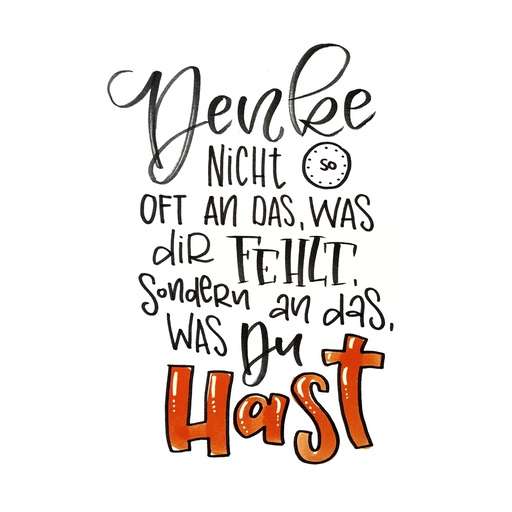 Denke
NiCHt so
OFT AN DAS, WAS
diR FEHLT,
Sondern an das,
WAS Du
Hast